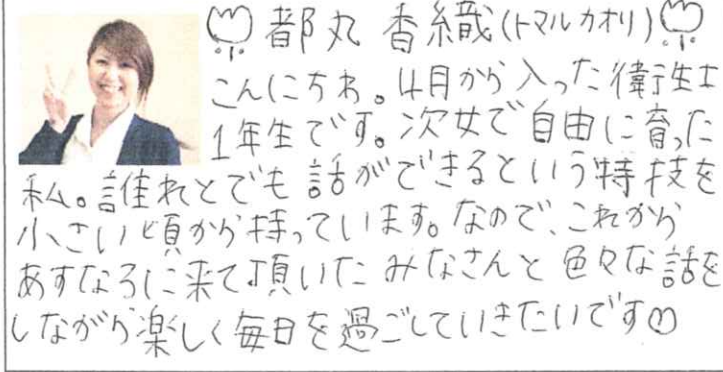 都丸 香織(トマルカオリ)
こんにちわ。4月から入った衛生士
1年生です。次女で自由に育った
私。誰れとでも話ができるという特技を
小さい頃から持っています。なので、これから
あすなろに来て頂いたみなさんと色々な話を
しながら楽しく毎日を過ごしていきたいです♡